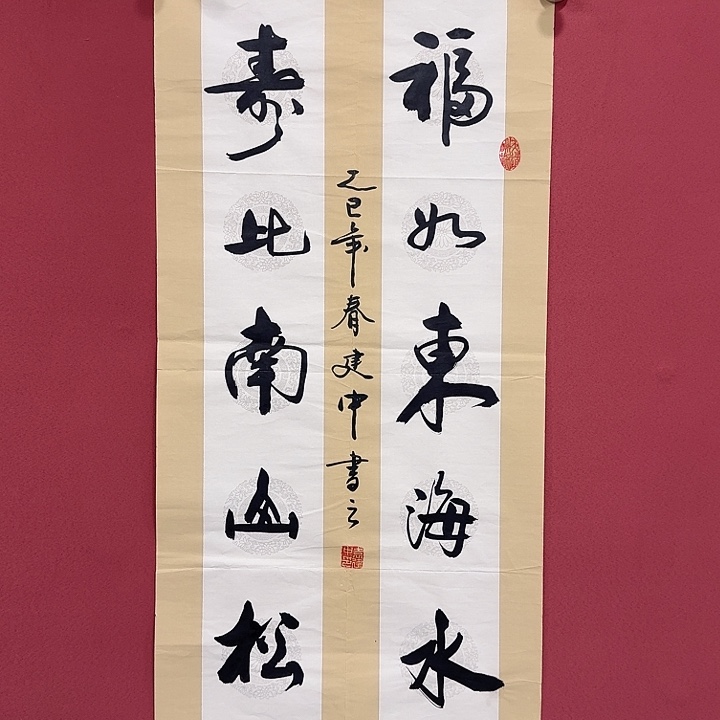 福如東海水
寿比南山松
乙巳年春建中書之